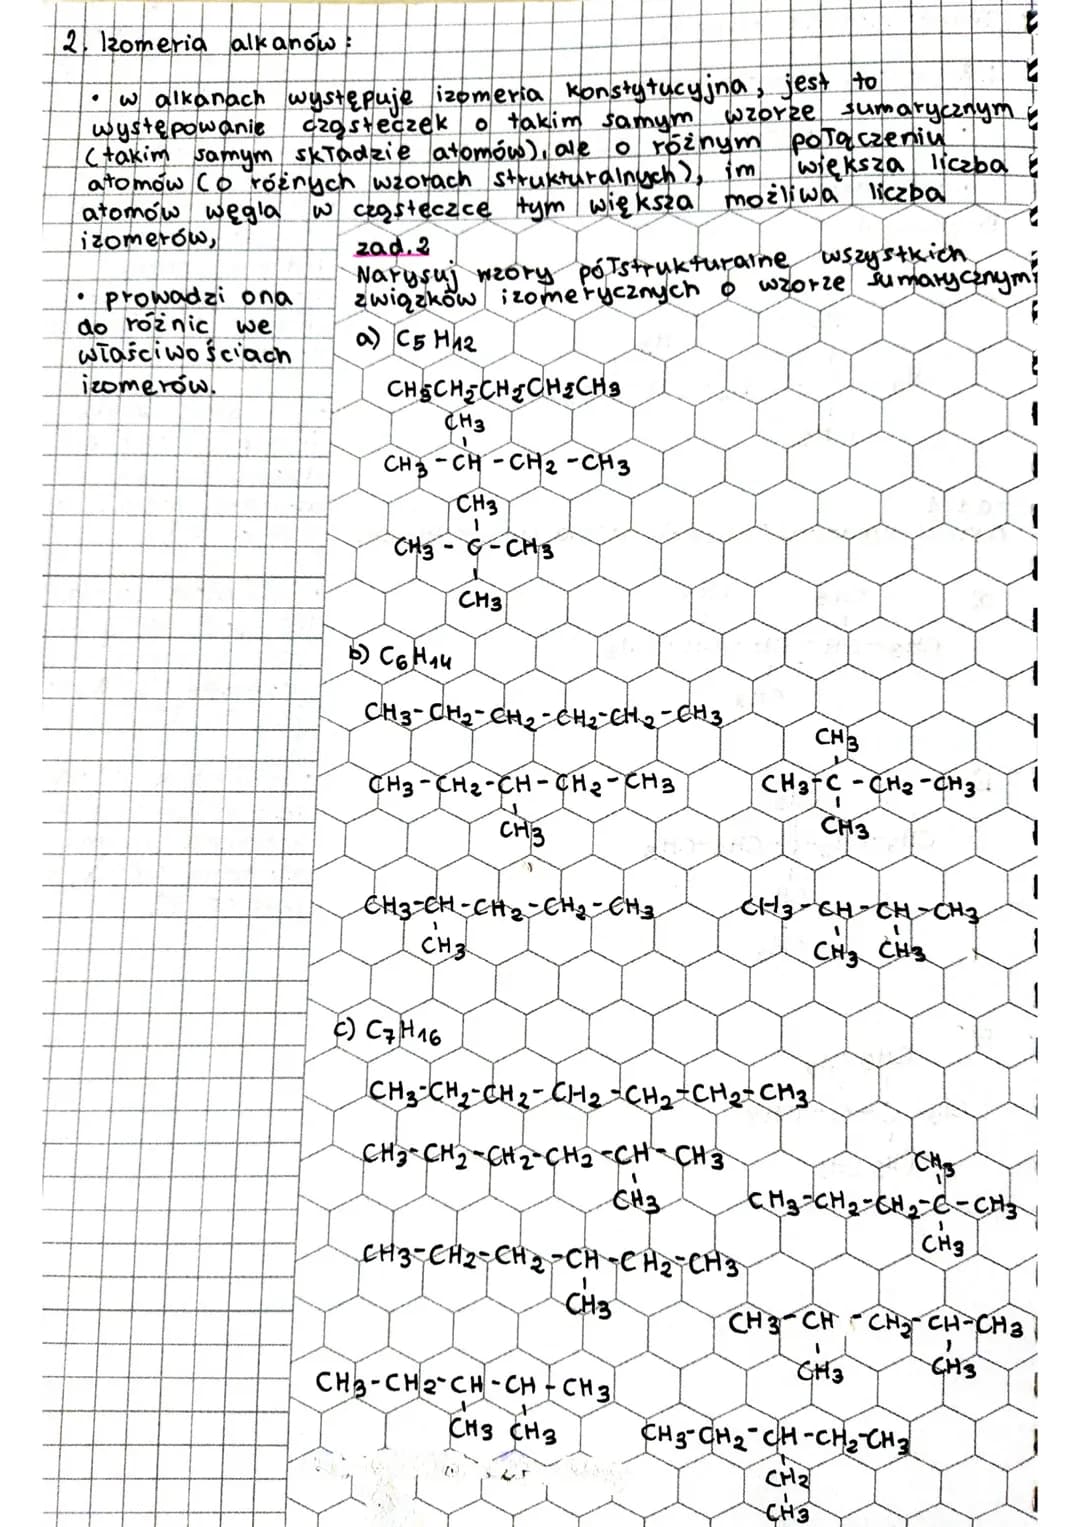 2. Izomeria alkanów:
• w alkanach występuje izomeria konstytucyjna, jest to
występowanie cząsteczek o takim samym wzorze sumarycznym
(takim samym składzie atomów), ale o różnym połączeniu
atomów (o różnych wzorach strukturalnych), im większa liczba
atomów węgla w cząsteczce tym większa możliwa liczba
izomerów,
• prowadzi ona
do różnic we
właściwościach
izomerów.
zad.2
Narysuj wzory półstrukturalne wszystkich
związków izomerycznych o wzorze sumarycznym:
a) C5H12
CH3CH2CH2CH2CH3
CH3
CH3-CH-CH2-CH3
CH3
CH3-C-CH3
CH3
b) C6H14
CH3-CH2-CH2-CH2-CH2-CH3
CH3
CH3-CH2-CH-CH2-CH3 CH3-C-CH2-CH3
CH3 CH3
CH3-CH-CH2-CH2-CH3 CH3-CH-CH-CH3
CH3 CH3 CH3
c) C7H16
CH3-CH2-CH2-CH2-CH2-CH2-CH3
CH3-CH2-CH2-CH2-CH-CH3 CH3
CH3 CH3-CH2-CH2-C-CH3
CH3-CH2-CH2-CH-CH2-CH3 CH3
CH3
CH3-CH-CH2-CH-CH3
CH3 CH3
CH3-CH2-CH-CH-CH3
CH3 CH3
CH3-CH2-CH-CH2-CH3
CH2
CH3